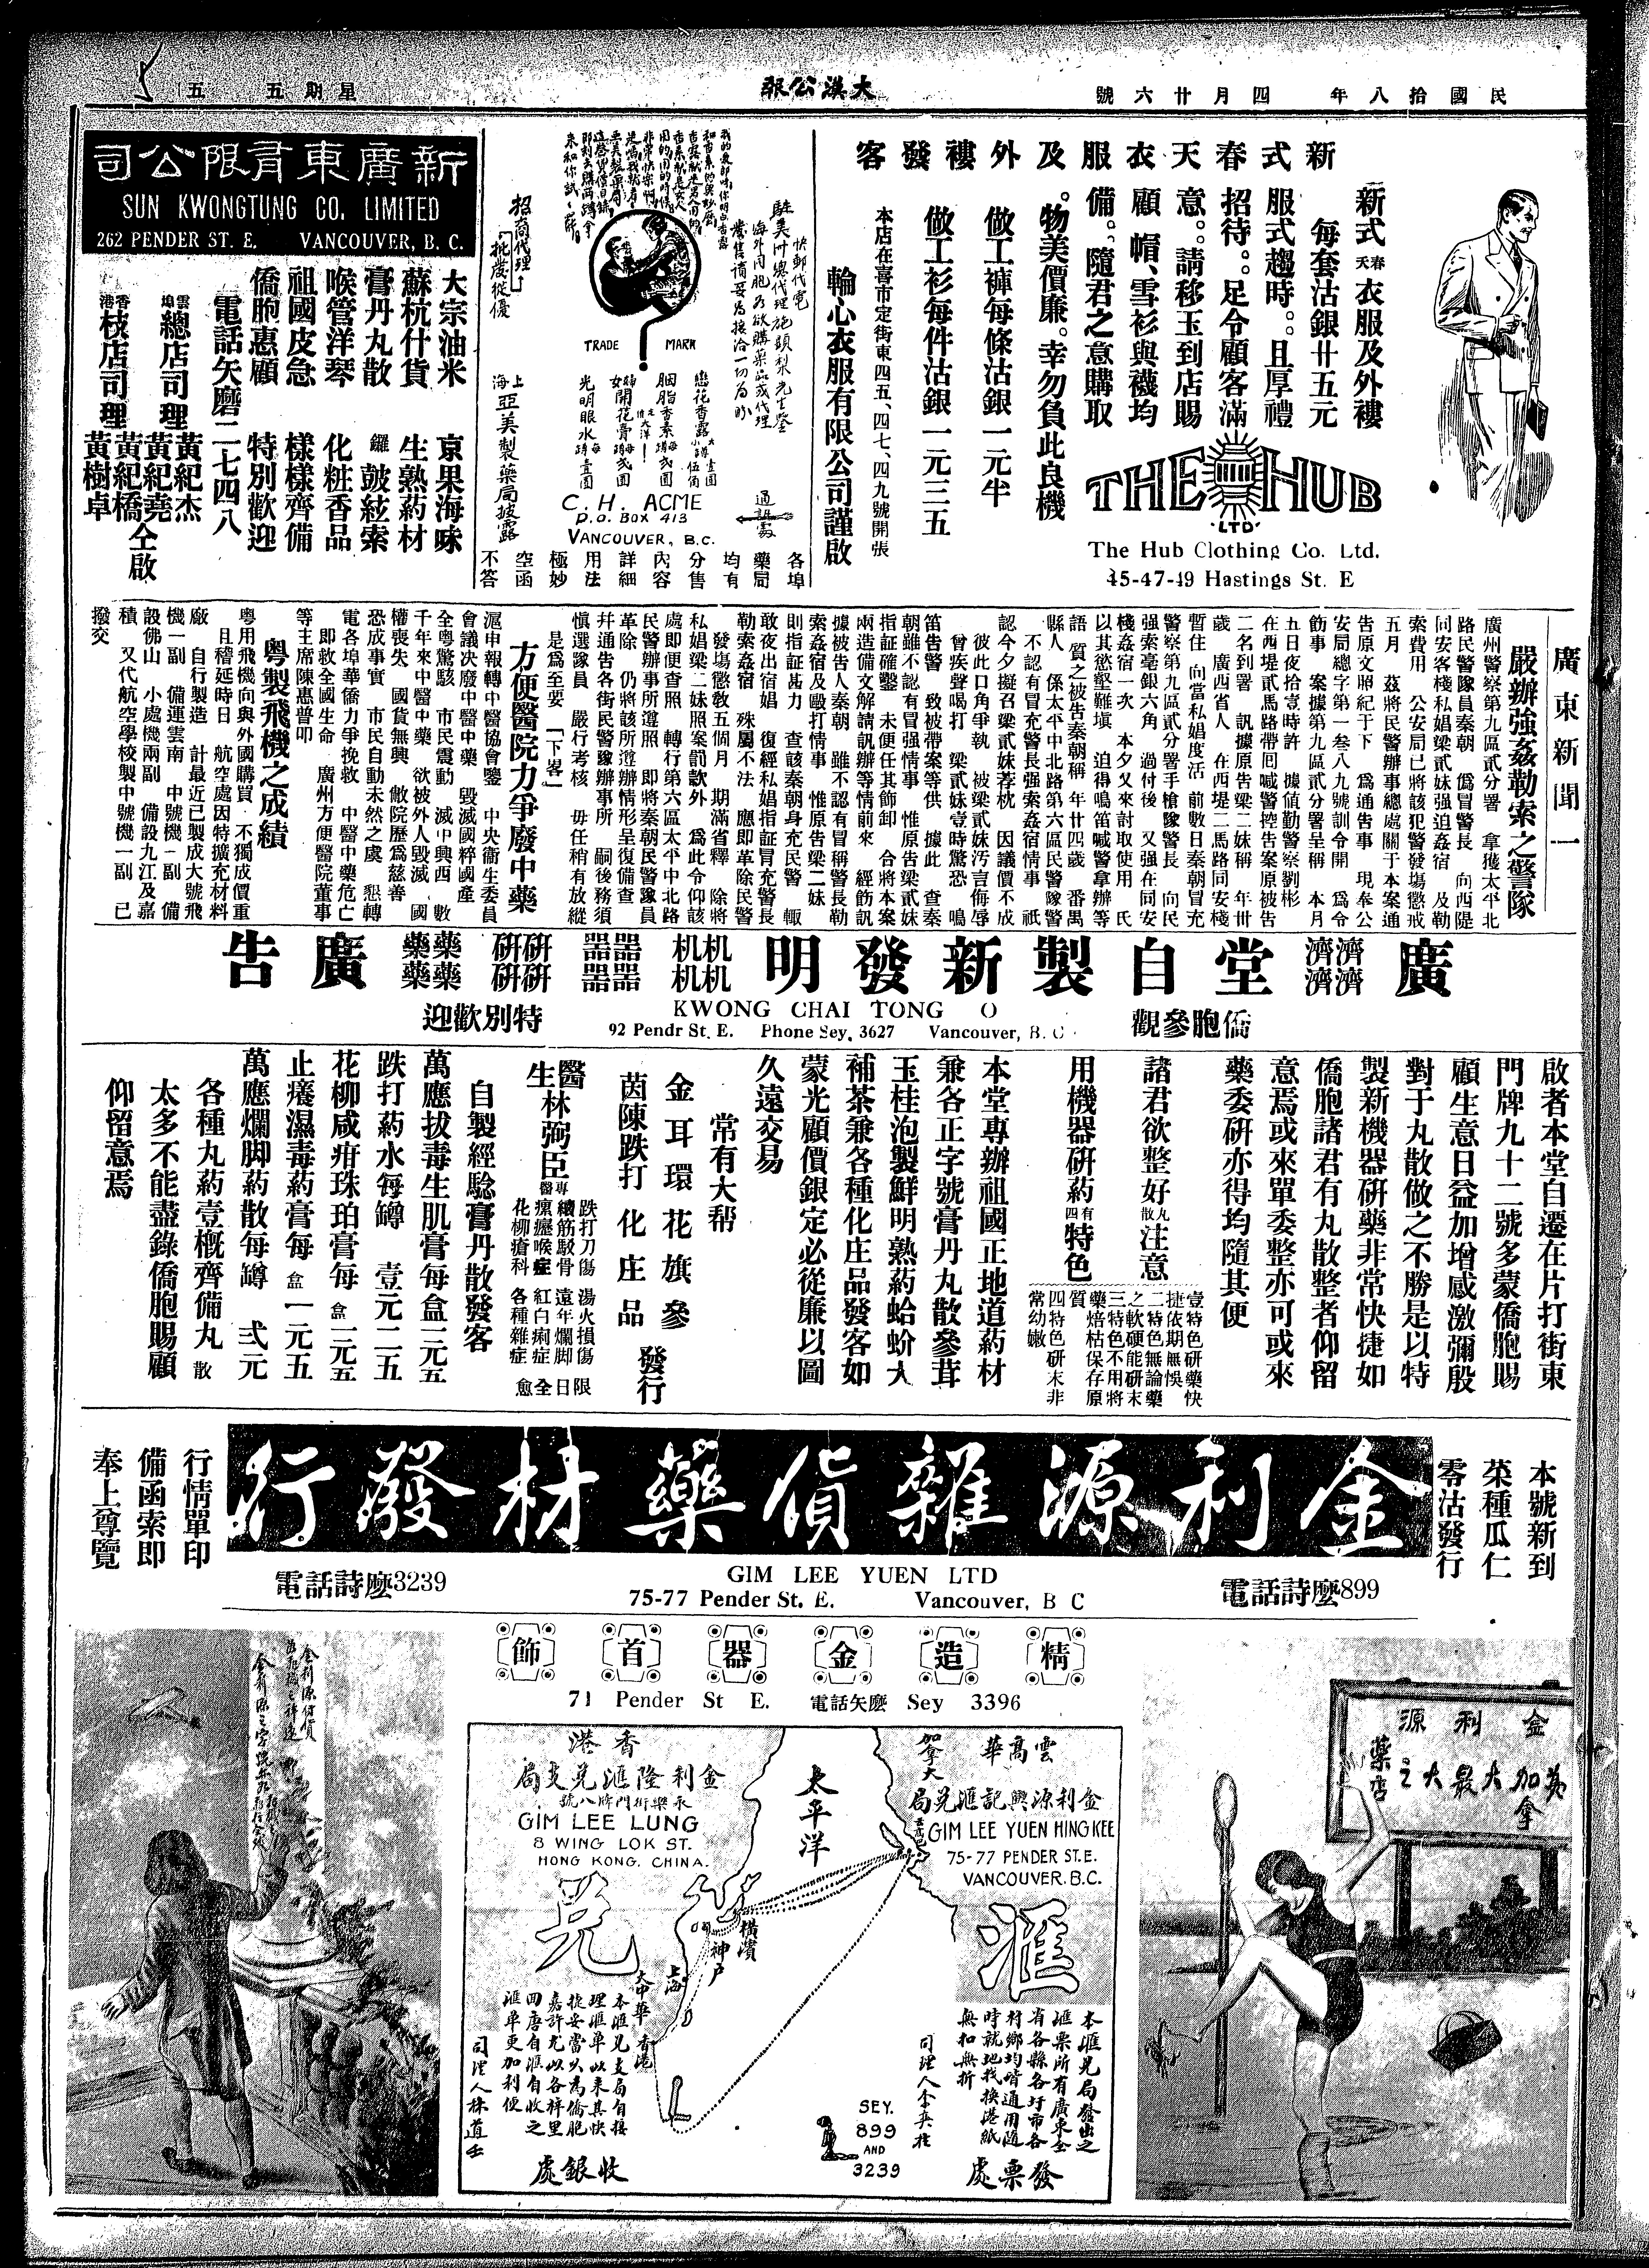 民國拾八年　四月廿六號
大漢公報
星期五　五
新式春天衣服及外褸發客
新式春天衣服及外褸
每套沽銀廿五元
服式趨時。且厚禮
招待。足令顧客滿
意。請移玉到店賜
顧　帽、雪衫與襪均
備。隨君之意購取
。物美價廉。幸勿負此良機
做工褲每條沽銀一元半
做工衫每件沽銀一元三五
本店在喜市定街東四五、四七、四九號開張
輪心衣服有限公司謹啟
THE HUB
LTD
The Hub Clothing Co. Ltd.
45-47-49 Hastings St. E
快郵代電
駐美州總代理施頭梨先生鑒
海外同胞為欲購藥品或代理
TRADE MARK
招商代理
批發從優
戀花香露
胭脂香素
開花膏
光明眼水
上海亞美製藥局披露
通訊處
C. H. ACME
P.O. BOX 413
VANCOUVER, B.C.
各埠
藥局
均有
分售
內容
詳細
用法
極妙
空函
不答
新廣東有限公司
SUN KWONGTUNG CO. LIMITED
262 PENDER ST. E. VANCOUVER, B. C.
大宗油米　京果海味
蘇杭什貨　生熟葯材
膏丹丸散　鑼鼓絃索
喉管洋琴　化粧香品
祖國皮急　樣樣齊備
僑胞惠顧　特別歡迎
電話矢磨二七四八
雲埠總店司理　黃紀杰
黃紀堯
香港枝店司理　黃紀橋
黃樹卓
仝啟
廣東新聞一
嚴辦強姦勒索之警隊
廣州警察第九區貳分署　拿獲太平北
路民警隊員秦朝　僞冒警長　向西隄
同安客棧私娼梁貳妹强迫姦宿　及勒
索費用　公安局已將該犯警發塲懲戒
五月　茲將民警辦事總處關于本案通
告原文照紀于下　爲通告事　現奉公
安局總字第一叁八九號訓令開　爲令
飭事　案據第九區貳分署呈稱　本月
五日夜拾壹時許　據值勤警察劉彬
在西堤貳馬路帶囘喊警控告案原被告
二名到署　訊據原告梁二妹稱　年卅
歲　廣西省人　在西堤二馬路同安棧
暫住　向當私娼度活　前數日秦朝冒充
警察第九區貳分署手槍隊警長　向民
强索毫銀六角　過付後　又强在同安
棧姦宿一次　本夕又來討取使用　氏
以其慾壑難塡　迫得鳴笛喊警拿辦等
語　質之被告秦朝稱　年廿四歲　番禺
縣人　係太平中北路第六區民警隊警
不認有冒充警長强索姦宿情事　祇
認今夕擬召梁貳妹荐枕　因議價不成
彼此口角爭執　被梁貳妹汚言侮辱
曾疾聲喝打　梁貳妹壹時驚恐　鳴
笛告警　致被帶案等供　據此　查秦
朝雖不認有冒强情事　惟原告梁貳妹
指証確鑿　未便任其飾卸　合將本案
兩造備文解請訊辦等情前來　經飭訊
據被告人秦朝　雖不認有冒稱警長勒
索姦宿及毆打情事　惟原告梁二妹
則指証甚力　查該秦朝身充民警　輒
敢夜出宿娼　復經私娼指証冒充警長
勒索姦宿　殊屬不法　應即革除民警
發塲懲敎五個月　期滿省釋　除將
私娼梁二妹照案罰款外　爲此令仰該
處即便查照　轉行第六區太平中北路
民警辦事所遵照　即將秦朝民警隊員
革除　仍將該所遵辦情形呈復備查
幷通告各街民警隊辦事所　嗣後務須
愼選隊員　嚴行考核　毋任稍有放縱
是爲至要　「下畧」
方便醫院力爭廢中藥
滬申報轉中醫協會鑒　中央衞生委員
會議決廢中醫中藥　毀滅國粹國產
全粵驚駭　市民震動　滅中興西　數
千年來中醫中藥　欲被外人毀滅　國
權喪失　國貨無興　敝院歷爲慈善
恐成事實　市民自動未然之虞　懇轉
電各埠華僑力爭挽救　中醫中藥危亡
即救全國生命　廣州方便醫院董事
等主席陳惠普叩
粵製飛機之成績
粵用飛機向與外國購買　不獨成價重
且稽延時日　航空處因特擴充材料
廠　自行製造　計最近已製成大號飛
機一副　備運雲南　中號機一副　備
設佛山　小處機兩副　備設九江及嘉
積　又代航空學校製中號機一副　已
撥交
廣濟堂自製新發明机器研藥廣告
KWONG CHAI TONG O
92 Pendr St. E. Phone Sey. 3627 Vancouver, B. C
僑胞參觀
特別歡迎
啟者本堂自遷在片打街東
門牌九十二號多蒙僑胞賜
顧生意日益加增感激彌殷
對于丸散做之不勝是以特
製新機器研藥非常快捷如
僑胞諸君有丸散整者仰留
意焉或來單委整亦可或來
藥委研亦得均隨其便
諸君欲整好丸散注意
用機器研葯有四特色
壹特色研藥快
捷依期無悞
二特色無論藥
之軟硬能研末
三特色不用將
藥焙枯保存原
質
四特色研末非
常幼嫩
本堂專辦祖國正地道葯材
兼各正字號膏丹丸散參茸
玉桂泡製鮮明熟葯蛤蚧大
補茶兼各種化庄品發客如
蒙光顧價銀定必從廉以圖
久遠交易
常有大帮
金耳環花旗參
茵陳跌打化庄品
發行
醫生林弼臣專醫
跌打刀傷　湯火損傷　限
續筋駁骨　遠年爛脚　日
瘰癧喉症　紅白痢症　全
花柳瘡科　各種雜症　愈
自製經騐膏丹散發客
萬應拔毒生肌膏每盒一元五
跌打葯水每罇　壹元二五
花柳咸疳珠珀膏每盒一元五
止癢濕毒葯膏每盒一元五
萬應爛脚葯散每罇　弍元
各種丸葯壹概齊備丸散
太多不能盡錄僑胞賜顧
仰留意焉
本號新到
菜種瓜仁
零沽發行
金利源雜貨藥材發行
行情單印
備函索即
奉上尊覽
GIM LEE YUEN LTD
75-77 Pender St. E. Vancouver, B C
電話詩麽899
電話詩麽3239
精造金器首飾
71 Pender St E. 電話矢麽 Sey 3396
金利源
英加拿大最大之
藥店
雲高華
加拿大
金利源興記滙兌局
GIM LEE YUEN HING KEE
75-77 PENDER ST. E.
VANCOUVER. B.C.
太平洋
香港
金利隆滙兌支局
永樂街門牌八號
GIM LEE LUNG
8 WING LOK ST.
HONG KONG. CHINA.
滙兌
橫濱
神戶
上海
大中華
香港
本滙兌局發出之
滙票所有廣東全
省各縣各圩市各
村鄉均皆通用隨
時就地找換港紙
無扣無折
發票處
本滙兌支局自接
理滙單以來其快
捷妥當以為僑胞
嘉許尤以各梓里
回唐自滙自收之
滙單更加利便
收銀處
SEY.
899
AND
3239